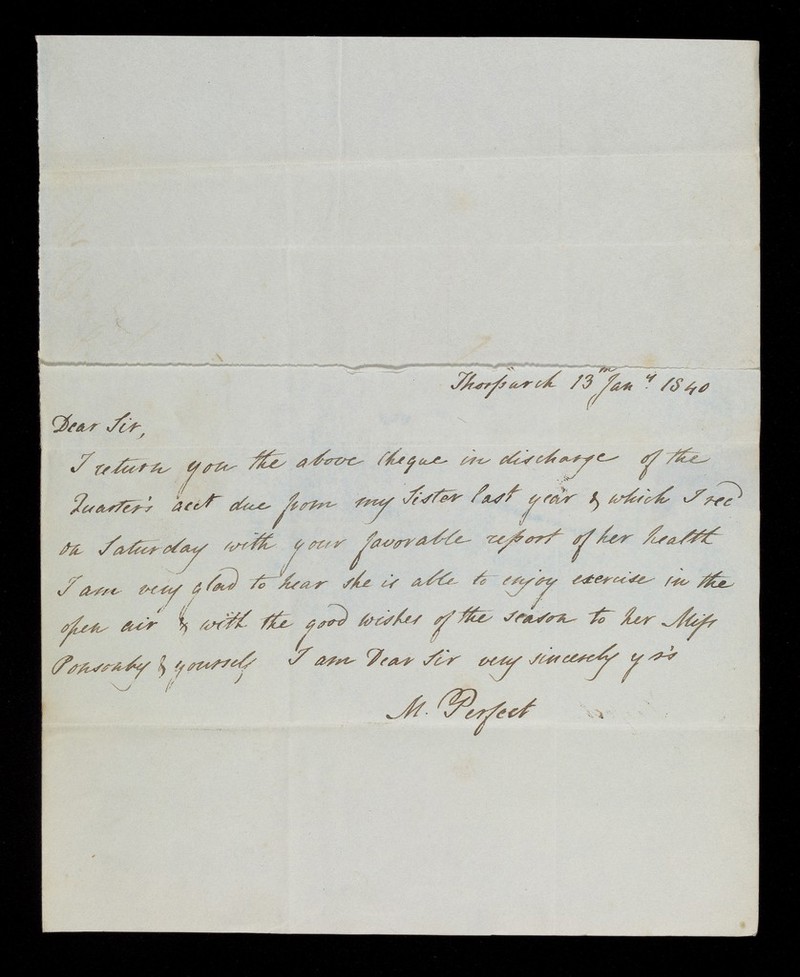 Thorparch 13th Jany. 1840
Dear Sir,
I return you the above Cheque in discharge of the
Quarter's acct due from my Sister last year & which I recd
on Saturday with your favorable report of her health
I am very glad to hear she is able to enjoy exercise in the
open air & with the good wishes of the season to her Miss
Ponsonby & yourself I am Dear Sir very sincerely yrs
M. Perfect